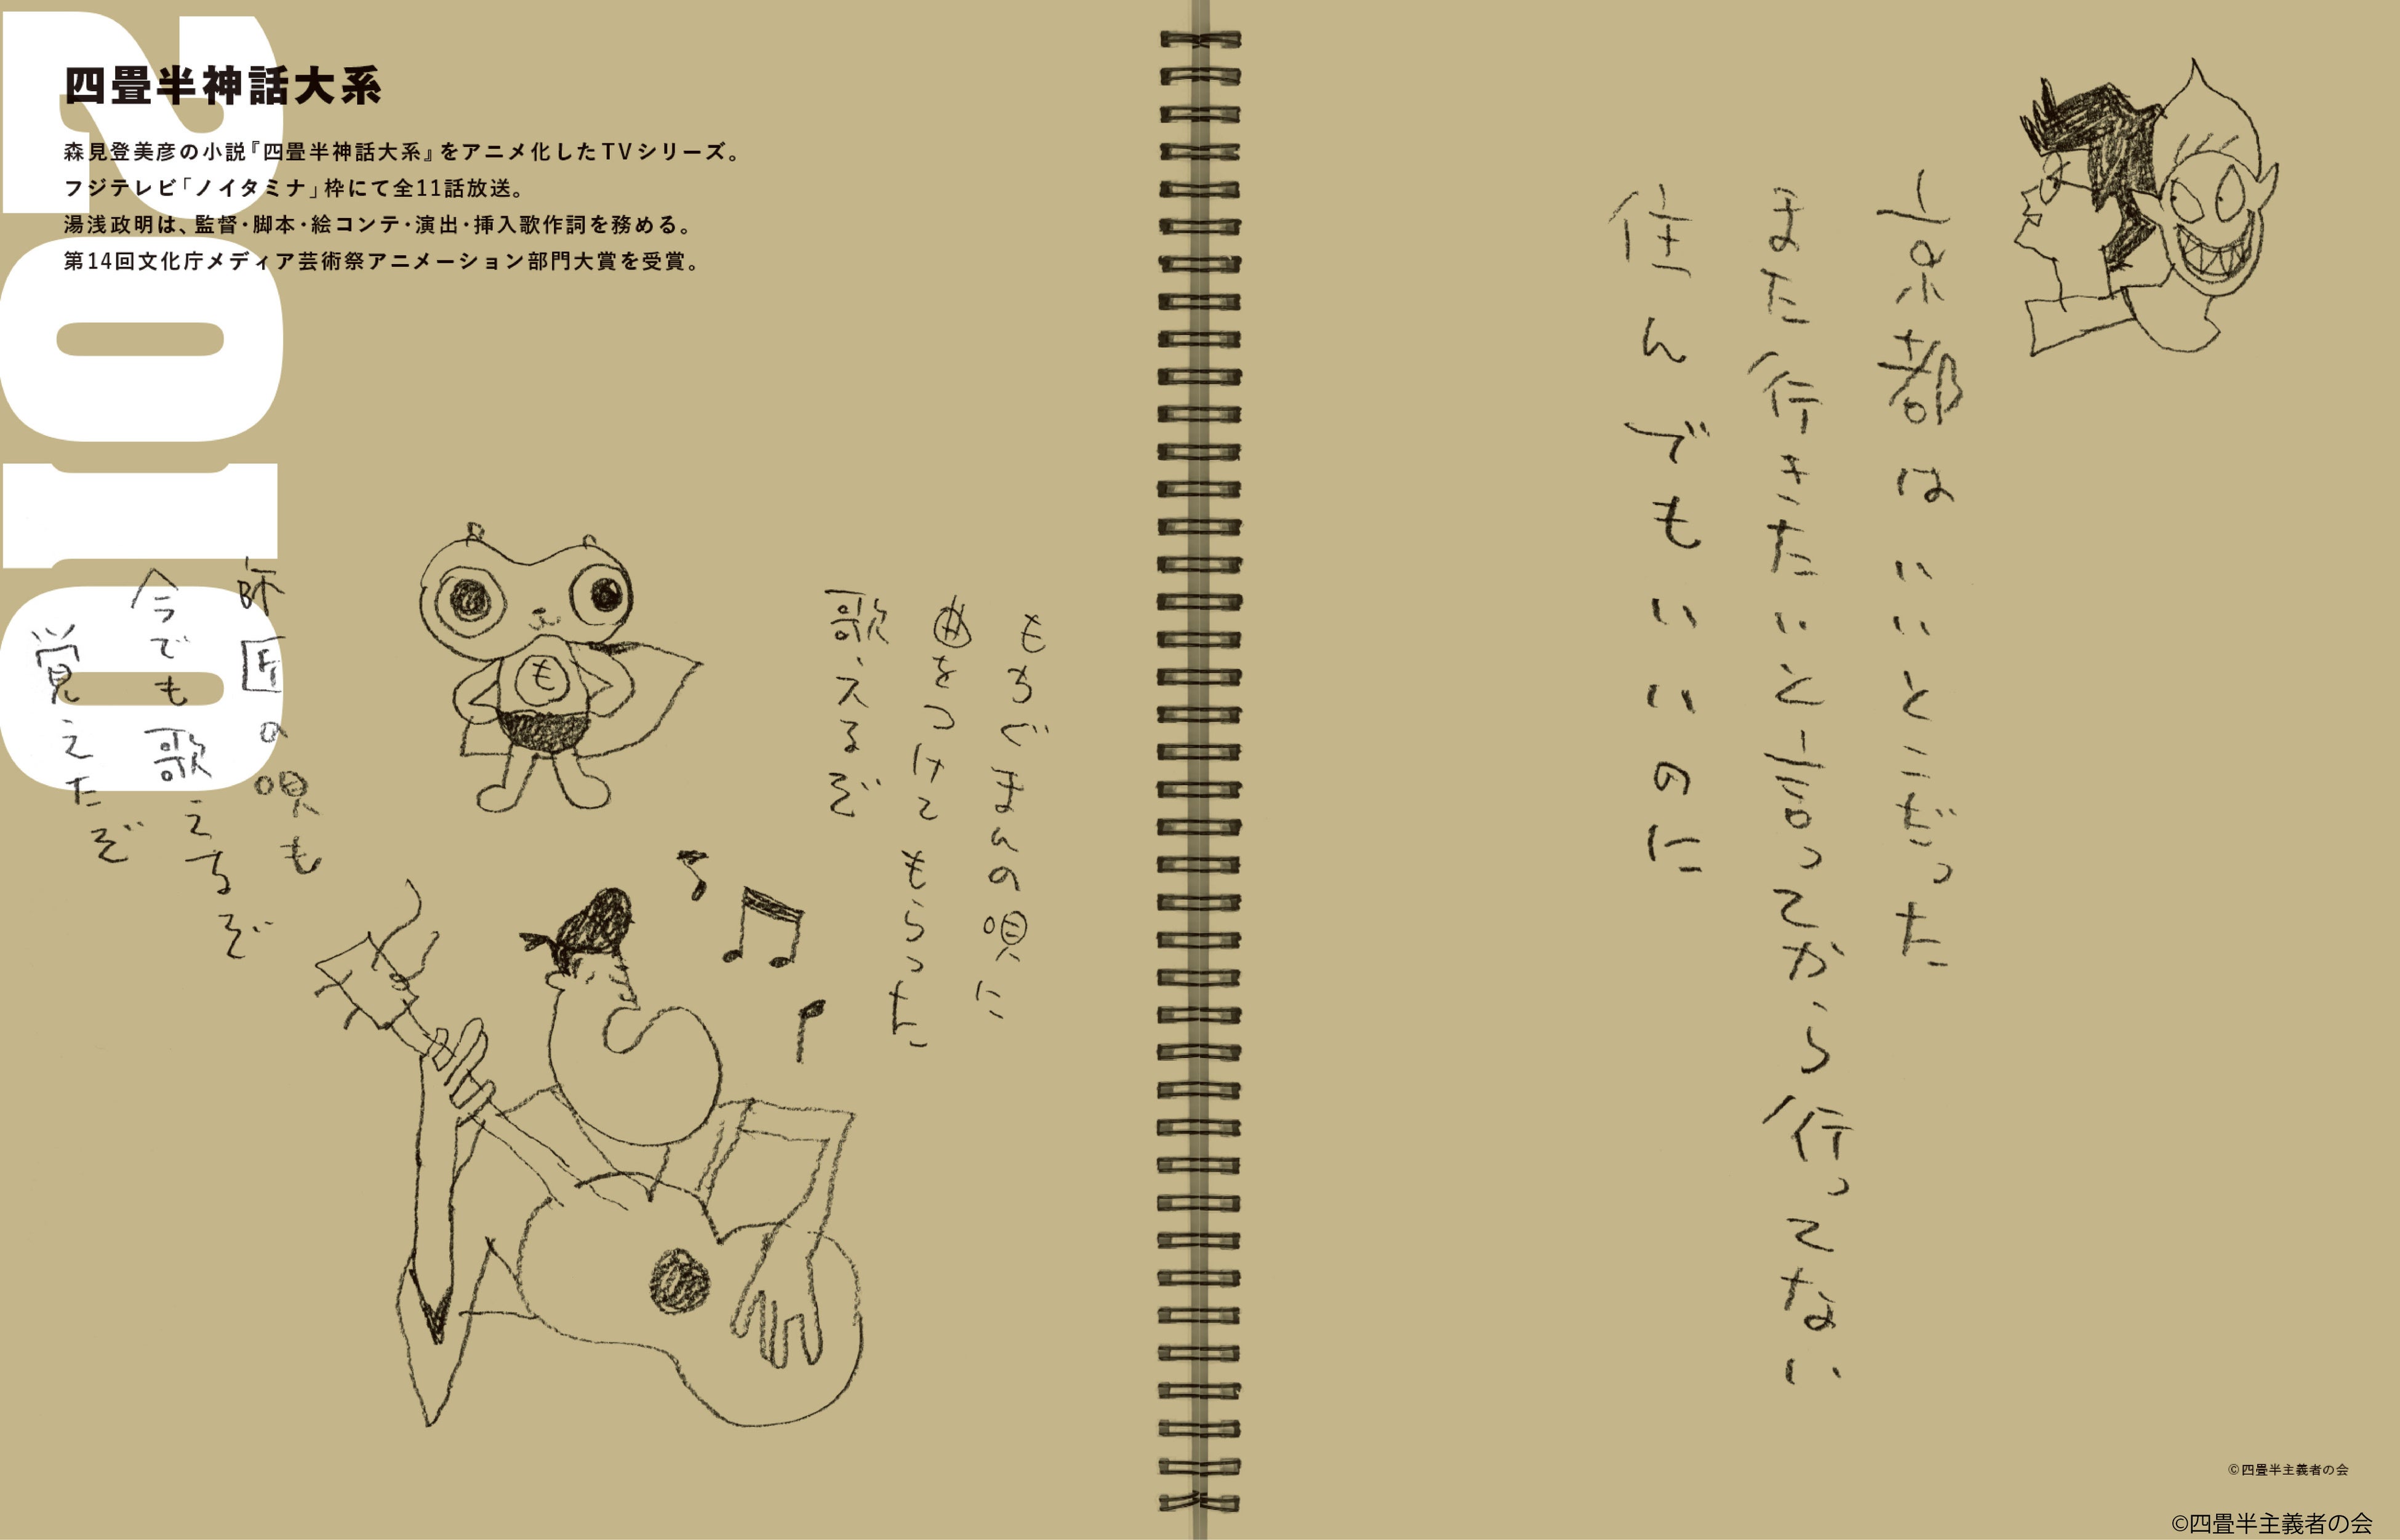 2010
四畳半神話大系
森見登美彦の小説『四畳半神話大系』をアニメ化したTVシリーズ。
フジテレビ「ノイタミナ」枠にて全11話放送。
湯浅政明は、監督・脚本・絵コンテ・演出・挿入歌作詞を務める。
第14回文化庁メディア芸術祭アニメーション部門大賞を受賞。
京都はいいとこだった
また行きたいと言ってから行ってない
住んでもいいのに
もちぐまんの唄に
曲をつけてもらった
歌えるぞ
も
師匠の唄も
今でも歌えるぞ
覚えたぞ
©四畳半主義者の会
©四畳半主義者の会